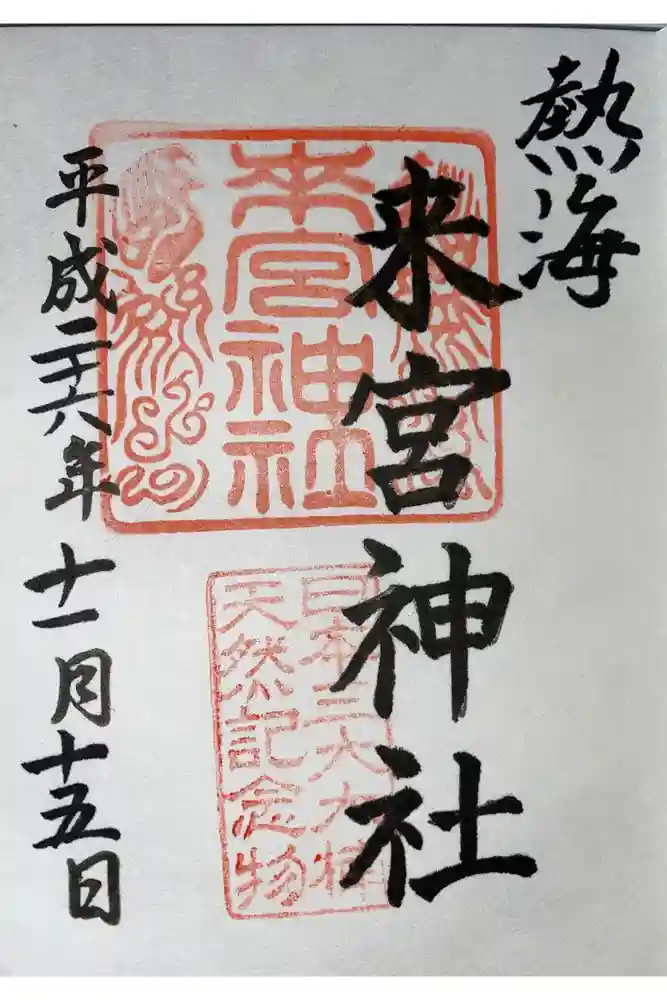 熱海
来宮神社
来宮神社
日本三大大楠
天然記念物
平成二十六年十一月十五日